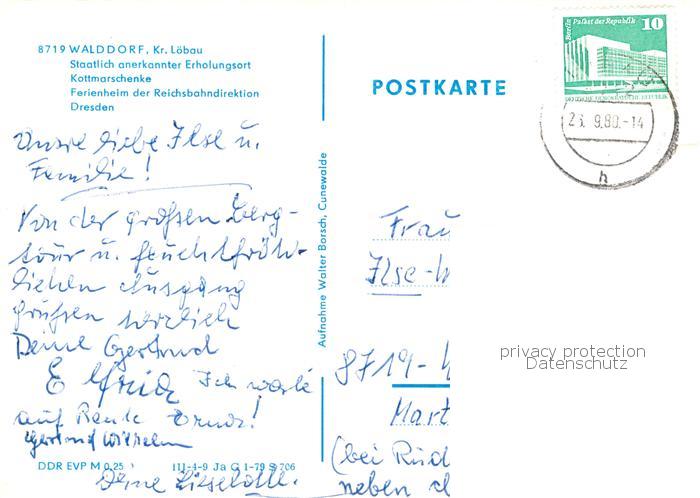 8719 WALDDORF, Kr. Löbau
Staatlich anerkannter Erholungsort
Kottmarschenke
Ferienheim der Reichsbahndirektion
Dresden
POSTKARTE
Berlin Palast der Republik 10
DEUTSCHE DEMOKRATISCHE REPUBLIK
23. 9.80.-14
h
Unsre liebe Ilse u.
Familie!
Von der großen Berg-
tour u. feuchtfröh-
lichen Ausgang
grüßen herzlich
Deine Gertrud
Elfride Ich warte
auf Rente
Gertrud Wilhelm
Deine Lieselotte.
Aufnahme Walter Borsch, Cunewalde
Frau
Ilse
8719-
Mart
(bei Rüd
neben
privacy protection
Datenschutz
DDR EVP M 0,25 III-4-9 Ja G 1-79 S 706